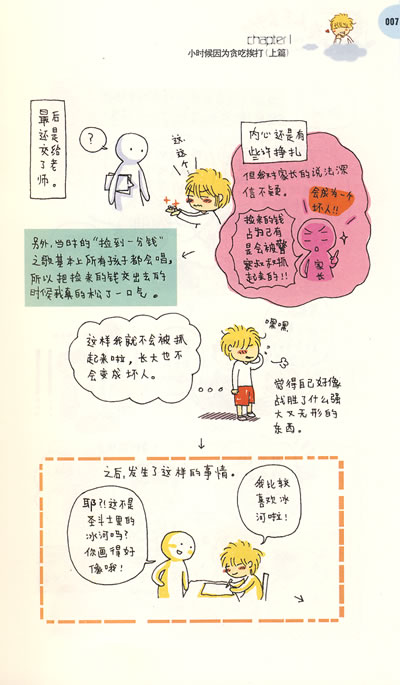 007
chapter 1
小时候因为贪吃挨打(上篇)
后是给老师。
最还交了
?
这、
这个
内心还是有
些许挣扎
但我对家长的说法深
信不疑。
会成为一个
坏人!!
捡来的钱
占为己有
是会被警
察叔叔抓
起来的!!
家长
另外,当时的“捡到一分钱”
之歌基本上所有孩子都会唱,
所以把捡来的钱交出去的
时候我真的松了一口气。
这样我就不会被抓
起来啦,长大也不
会变成坏人。
嘿嘿
觉得自己好像
战胜了什么强
大又无形的
东西。
之后,发生了这样的事情。
耶?!这不是
圣斗士里的
冰河吗?
你画得好
像哦!
我比较
喜欢冰
河啦!